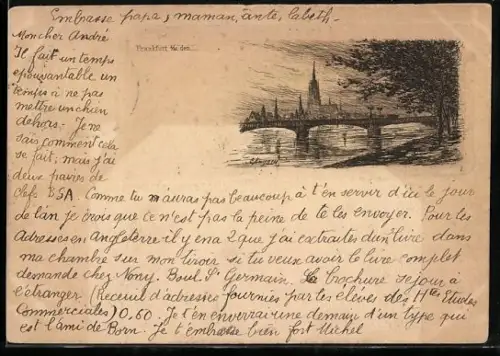 Embrasse papa, maman, tante, labyth-
Mon cher André
Il fait un temps
épouvantable un
temps à ne pas
mettre un chien
dehors. Je ne
sais comment cela
se fait, mais j'ai
deux paires de
clefs BSA. Comme tu n'auras pas beaucoup à t'en servir d'ici le jour
de l'an je crois que ce n'est pas la peine de te les envoyer. Pour les
adresses en Angleterre il y en a 2 que j'ai extraites d'un livre dans
ma chambre sur mon tiroir si tu veux avoir le livre complet
demande chez Nony. Boul. St Germain. La brochure séjour à
l'étranger. (Recueil d'adresses fournies par les élèves des Htes Etudes
Commerciales) 0.60. Je t'en enverrai une demain d'un type qui
est l'ami de Born. Je t'embrasse bien fort Michel
Frankfurt